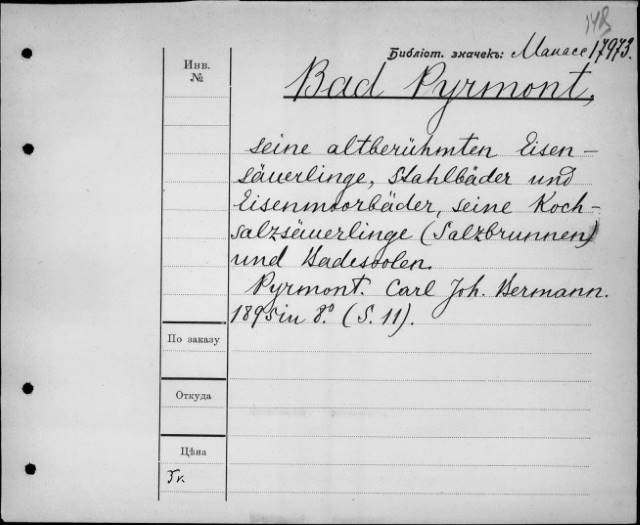 148
Библіот. значекъ: Манасс 17973.
Инв.
№
Bad Pyrmont,
seine altberühmten Eisen-
säuerlinge, Stahlbäder und
Eisenmoorbäder, seine Koch-
salzsäuerlinge (Salzbrunnen)
und Badesoolen.
Pyrmont. Carl Joh. Hermann.
1895 in 8.° (S. 11).
По заказу
Откуда
Цѣна